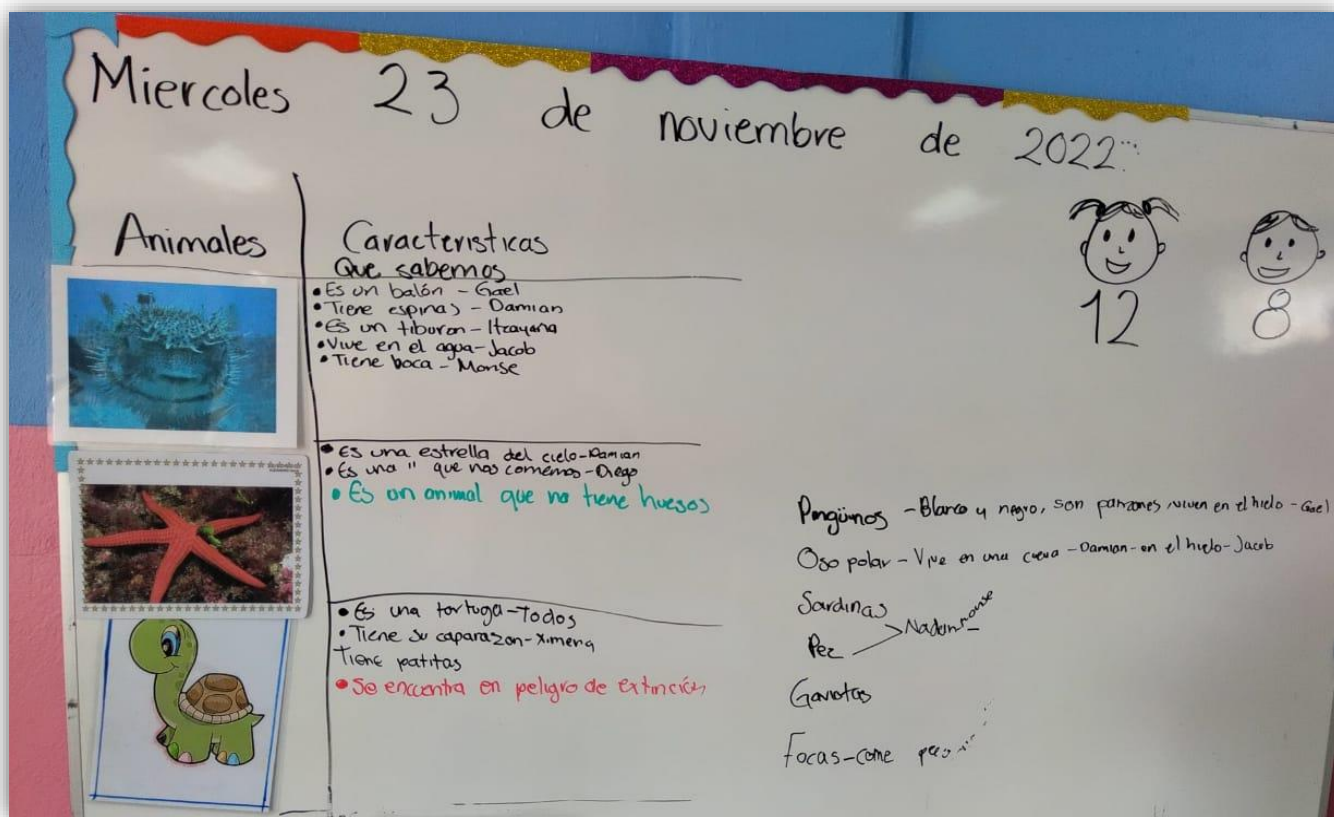 Miercoles 23 de noviembre de 2022
12 8
Animales
Caracteristicas
Que sabemos
• Es un balón - Gael
• Tiene espinas - Damian
• Es un tiburon - Itzayana
• Vive en el agua - Jacob
• Tiene boca - Monse
• Es una estrella del cielo - Damian
• Es una " que nos comemos - Diego
• Es un animal que no tiene huesos
• Es una tortuga - Todos
• Tiene su caparazon - Ximena
Tiene patitas
• Se encuentra en peligro de extinción
Pingüinos - Blanco y negro, son panzones, viven en el hielo - Gael
Oso polar - Vive en una cueva - Damian - en el hielo - Jacob
Sardinas
Pez
Nadan - monse
Gaviotas
Focas - come